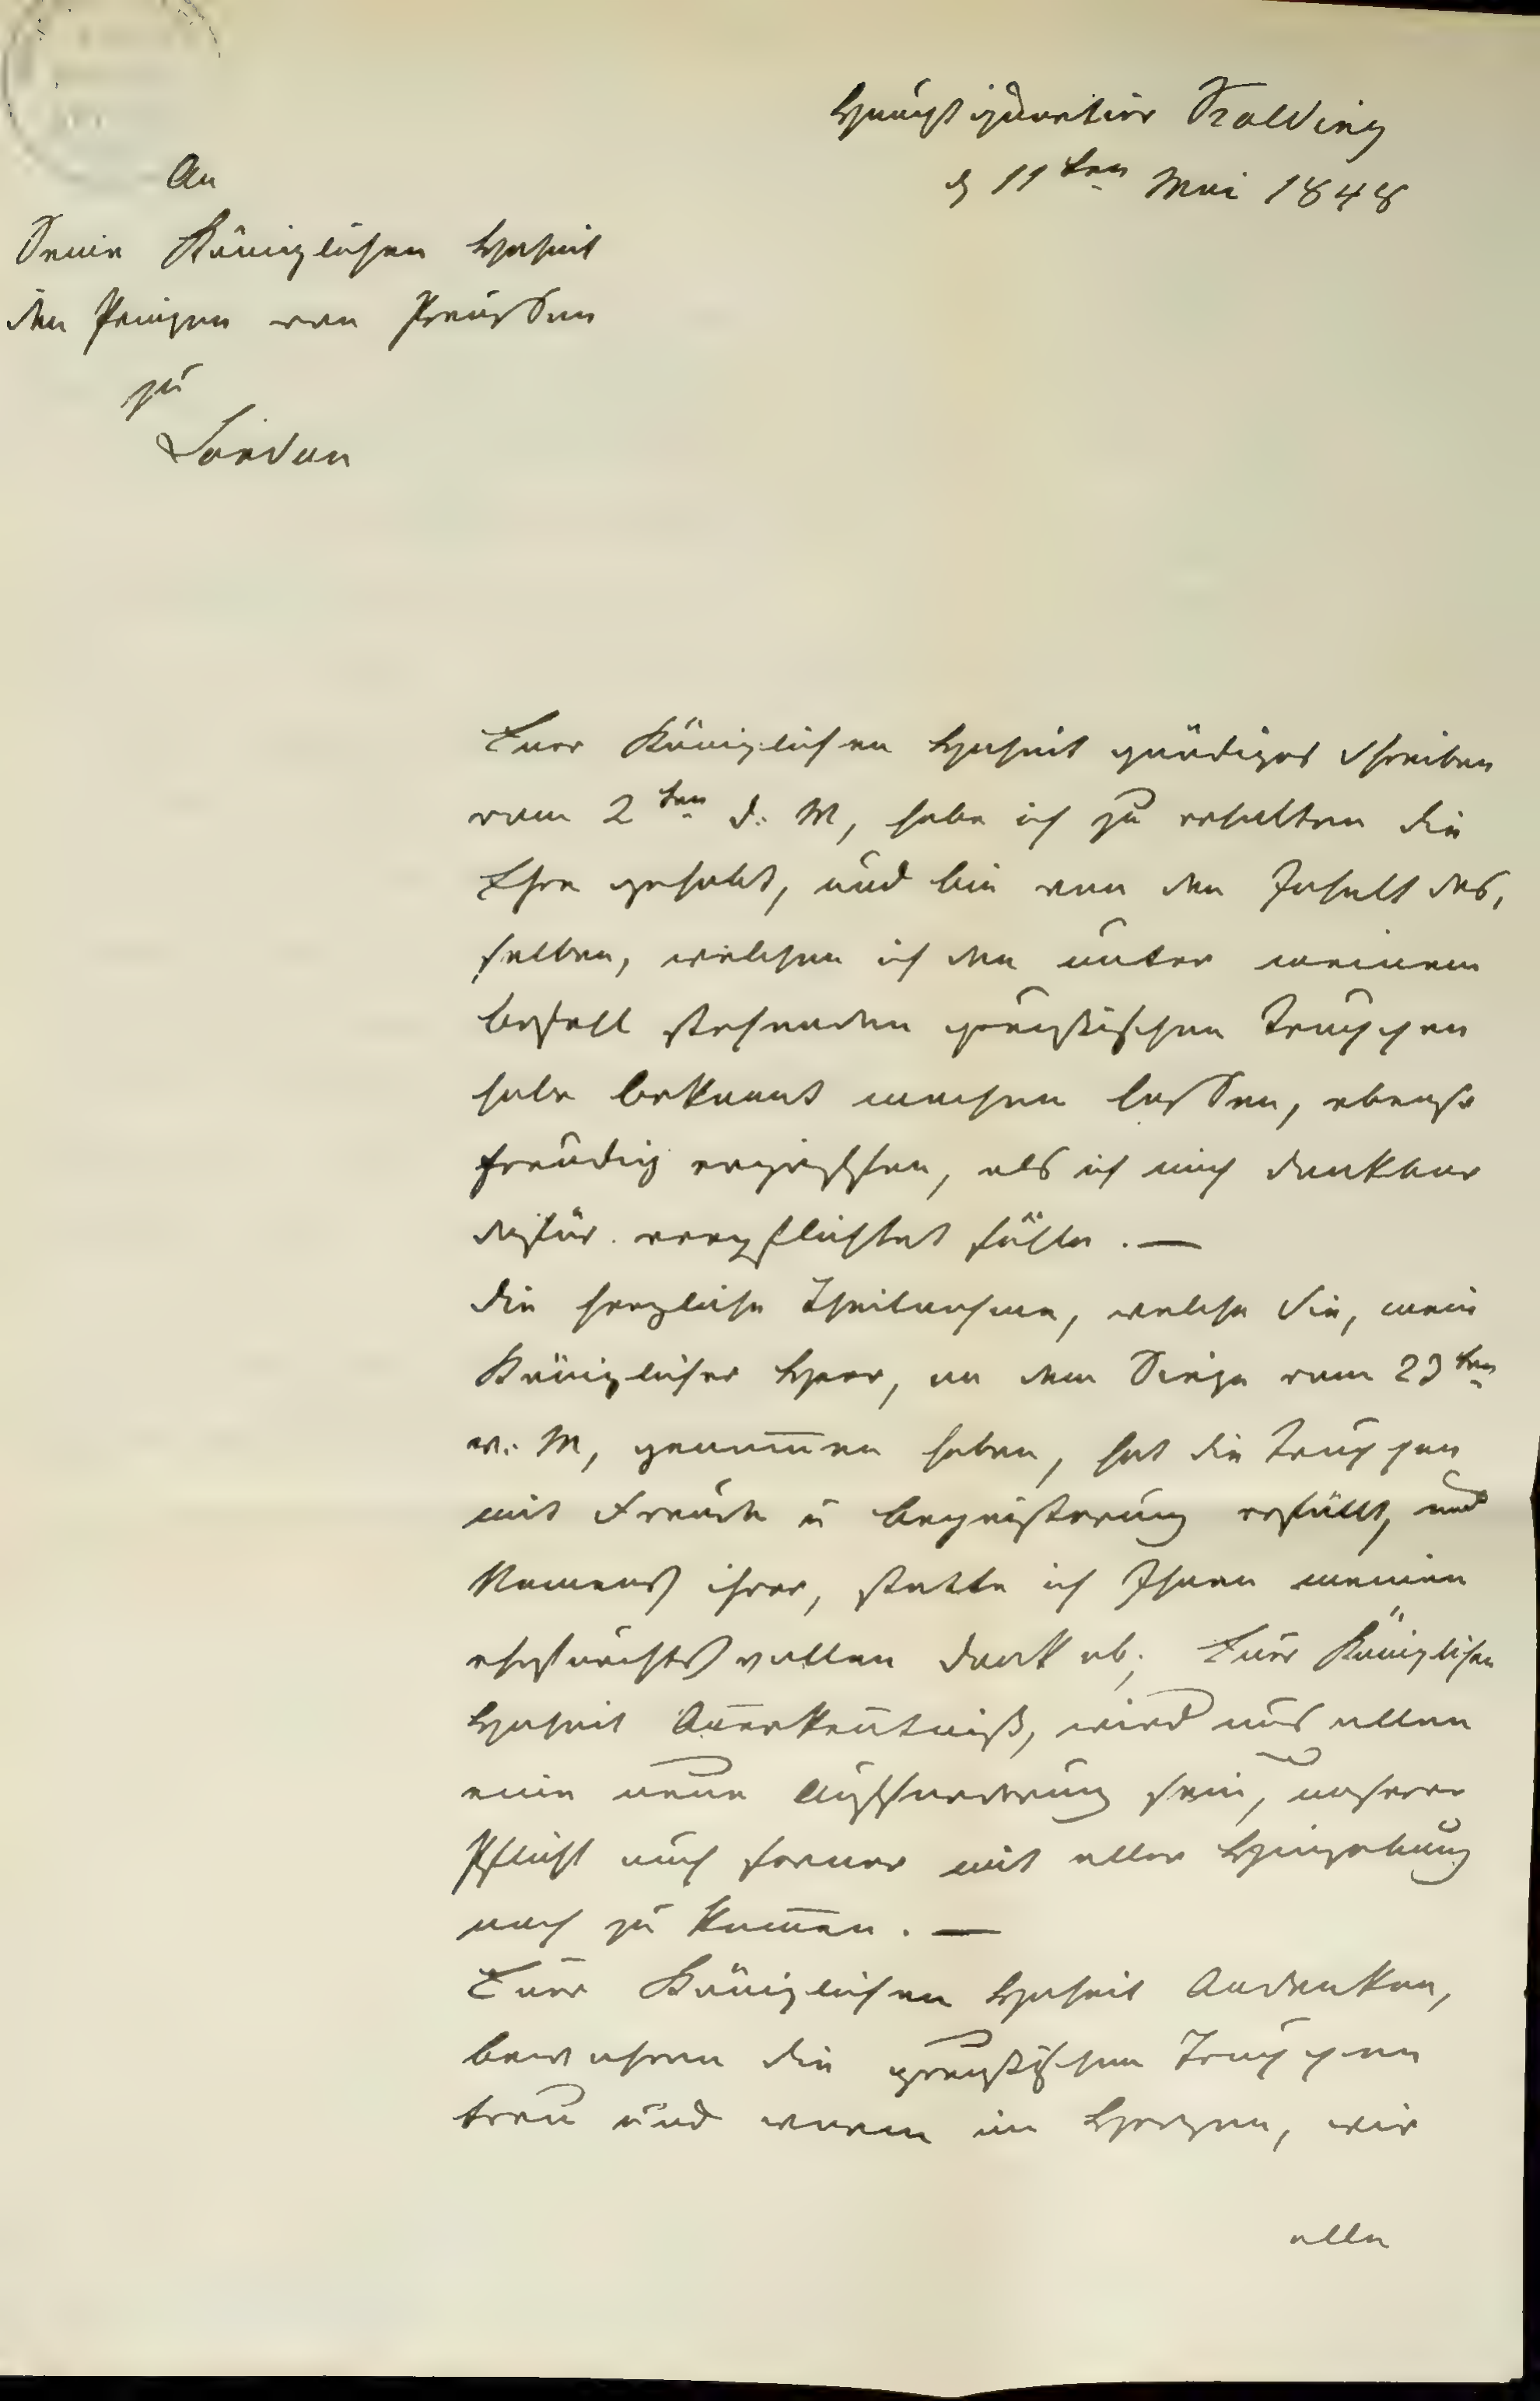 Hauptquartier Kolding
d 11ten Mai 1848
An
Seine Königlichen Hoheit
den Prinzen von Preussen
zu
London
Euer Königlichen Hoheit gnädiges Schreiben
vom 2ten d. M, habe ich zu erhalten die
Ehre gehabt, und bin von den Inhalt des,
selben, welchen ich den unter meinem
befehl stehenden preußischen Truppen
habe bekannt machen lassen, ebenso
freudig ergriffen, als ich mich dankbar
dafür verpflichtet fühle. —
die herzliche Theilnahme, welche Sie, mein
Königlicher Herr, an dem Siege vom 23ten
v. M, genom̅en haben, hat die Truppen
mit Freude u begeisterung erfüllt, und
Namens ihrer, statte ich Ihnen meinen
ehrfurchtsvollen dank ab; Euer Königlichen
Hoheit An̅erken̅tniß, wird uns allen
eine neue Aufforderung sein, unserer
Pflicht auch ferner mit aller Hingebung
nach zu kom̅en. —
Euer Königlichen Hoheit Andenken,
bewahren die preußischen Truppen
treu und warm im Herzen, wir
alle